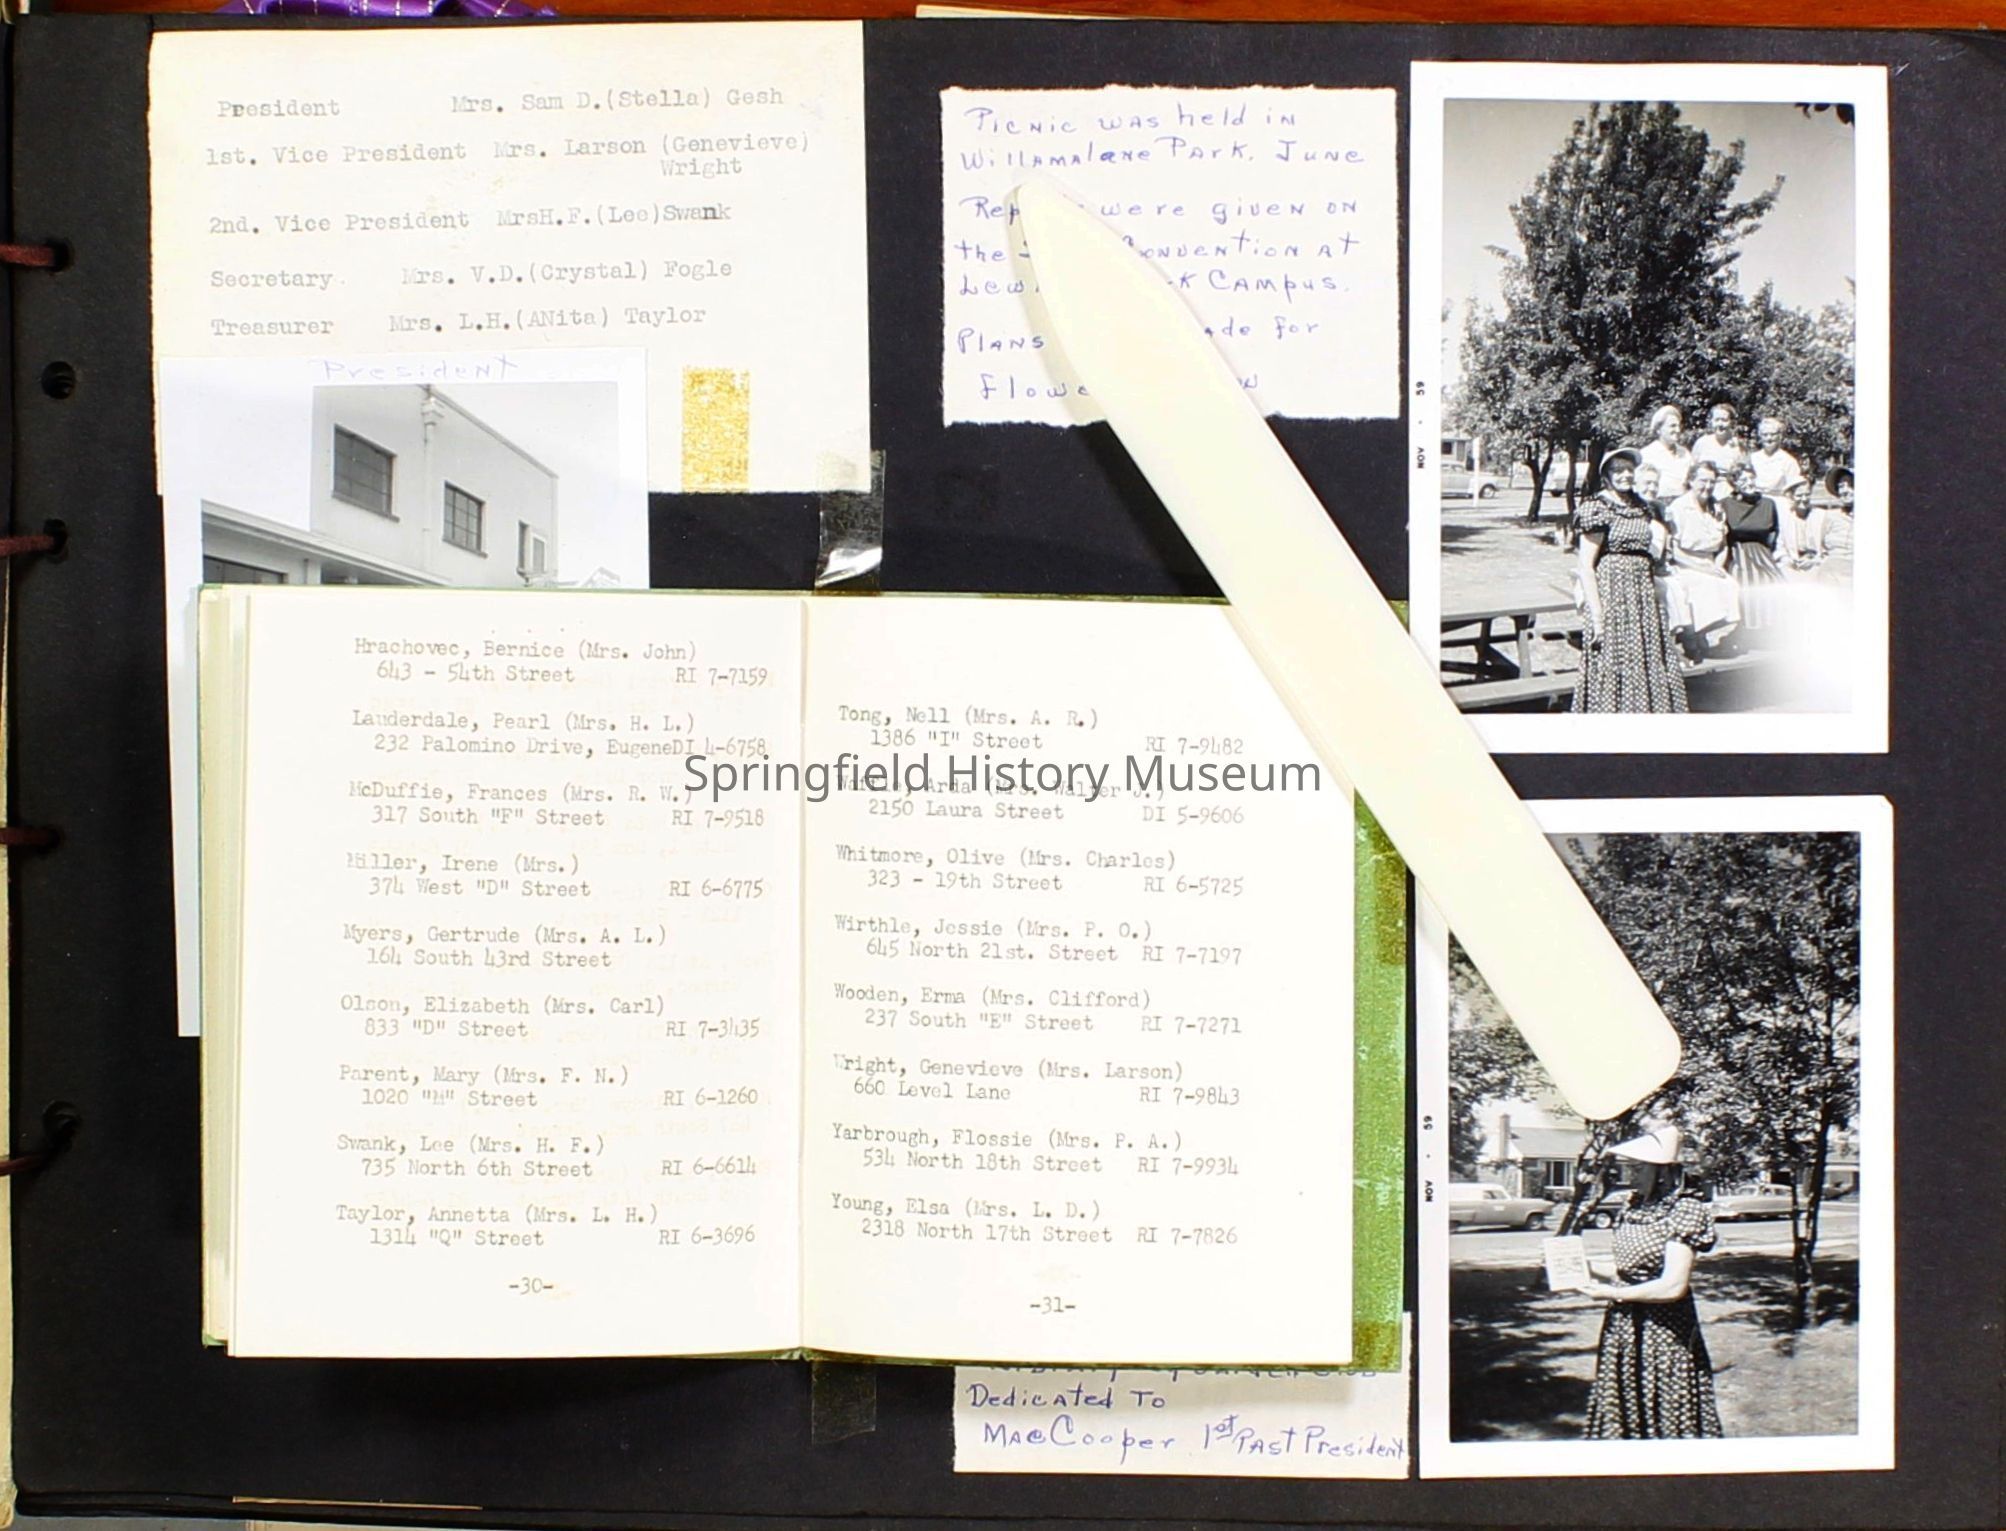 President Mrs. Sam D.(Stella) Gesh
1st. Vice President Mrs. Larson (Genevieve)
Wright
2nd. Vice President MrsH.F.(Lee)Swank
Secretary. Mrs. V.D.(Crystal) Fogle
Treasurer Mrs. L.H.(ANita) Taylor
President
Picnic was held in
Willamalane Park. June
were given on
the Convention at
Campus.
Plans for
NOV • 59
Hrachovec, Bernice (Mrs. John)
643 - 54th Street RI 7-7159
Lauderdale, Pearl (Mrs. H. L.)
232 Palomino Drive, EugeneDI 4-6758
McDuffie, Frances (Mrs. R. W.)
317 South "F" Street RI 7-9518
Miller, Irene (Mrs.)
374 West "D" Street RI 6-6775
Myers, Gertrude (Mrs. A. L.)
164 South 43rd Street
Olson, Elizabeth (Mrs. Carl)
833 "D" Street RI 7-3435
Parent, Mary (Mrs. F. N.)
1020 "M" Street RI 6-1260
Swank, Lee (Mrs. H. F.)
735 North 6th Street RI 6-6614
Taylor, Annetta (Mrs. L. H.)
1314 "Q" Street RI 6-3696
-30-
Tong, Nell (Mrs. A. R.)
1386 "I" Street RI 7-9482
Springfield History Museum
Arda (Mrs. Walter J.)
2150 Laura Street DI 5-9606
Whitmore, Olive (Mrs. Charles)
323 - 19th Street RI 6-5725
Wirthle, Jessie (Mrs. P. O.)
645 North 21st. Street RI 7-7197
Wooden, Erma (Mrs. Clifford)
237 South "E" Street RI 7-7271
Wright, Genevieve (Mrs. Larson)
660 Level Lane RI 7-9843
Yarbrough, Flossie (Mrs. P. A.)
534 North 18th Street RI 7-9934
Young, Elsa (Mrs. L. D.)
2318 North 17th Street RI 7-7826
-31-
NOV • 59
Dedicated To
Mae Cooper 1st Past President